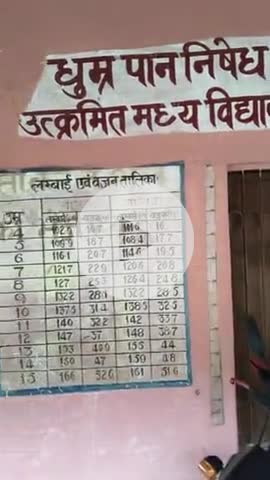 धुम्र पान निषेध
उत्क्रमित मध्य विद्या
लम्बाई एवं वजन तालिका
उम्र
5 109.9 18.7 108.4 17.7
6 116.1 20.7 114.6 19.5
7 121.7 22.9 120.6 21.8
8 127 25.3 126.4 24.8
9 132.2 28.1 132.2 28.5
10 137.5 31.4 138.3 32.5
11 140 32.2 142 33.7
12 147 37 148 38.7
13 153 40.9 155 44
14 160 47 159 48
15 166 52.6 161 51.6